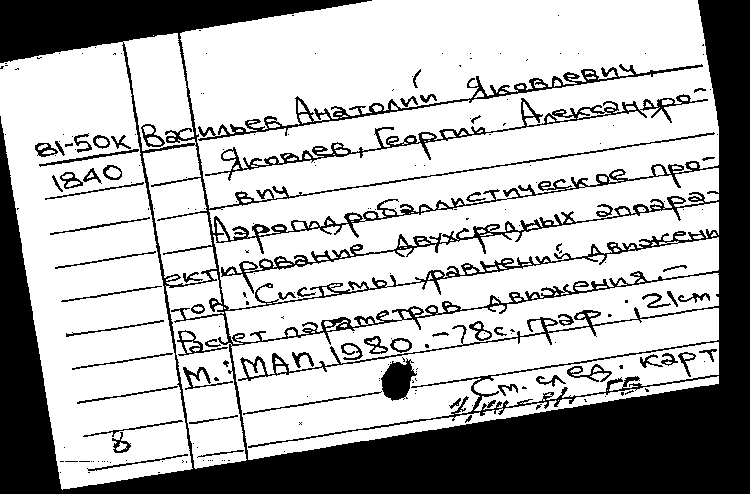 81-50к Васильев, Анатолий Яковлевич,
1840 Яковлев, Георгий Александро-
вич.
Аэрогидробаллистическое про-
ектирование двухсредных аппара-
тов: Системы уравнений движени
Расчет параметров движения. —
М.: МАИ, 1980. - 78 с., граф.; 21 см.
См. след. карт
ГБ.
8